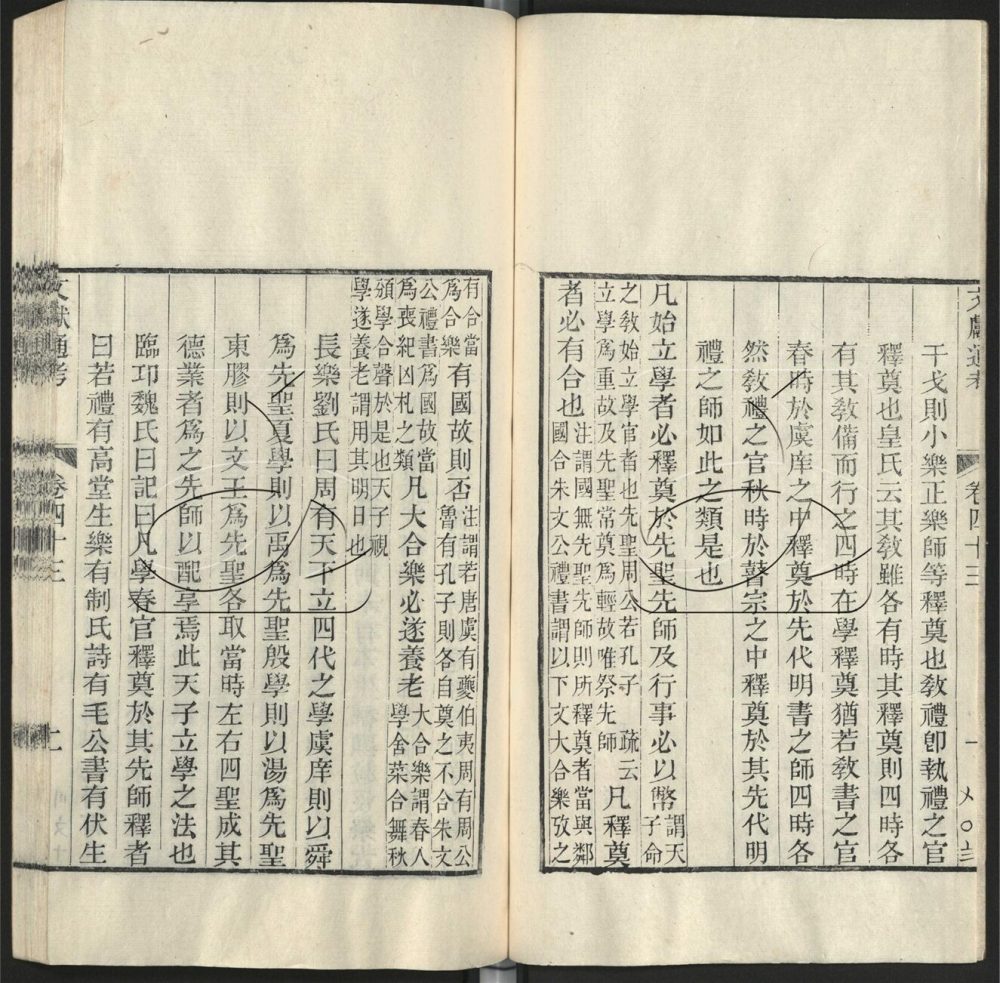 文獻通考 卷四十三 一
干戈則小樂正樂師等釋奠也敎禮卽執禮之官
釋奠也皇氏云其敎雖各有時其釋奠則四時各
有其敎備而行之四時在學釋奠猶若敎書之官
春時於虞庠之中釋奠於先代明書之師四時各
然敎禮之官秋時於瞽宗之中釋奠於其先代明
禮之師如此之類是也
凡始立學者必釋奠於先聖先師及行事必以幣謂天子命
之敎始立學官者也先聖周公若孔子 疏云
立學爲重故及先聖常奠爲輕故唯祭先師
凡釋奠
者必有合也注謂國無先聖先師則所釋奠者當與鄰
國合朱文公禮書謂以下文大合樂攷之
有合當
爲合樂
有國故則否注謂若唐虞有夔伯夷周有周公
魯有孔子則各自奠之不合朱文
公禮書爲國故當
爲喪紀凶札之類
凡大合樂必遂養老大合樂謂春入
學舍菜合舞秋
頒學合聲於是也天子視
學遂養老謂用其明日也
長樂劉氏曰周有天下立四代之學虞庠則以舜
爲先聖夏學則以禹爲先聖殷學則以湯爲先聖
東膠則以文王爲先聖各取當時左右四聖成其
德業者爲之先師以配享焉此天子立學之法也
臨卭魏氏曰記曰凡學春官釋奠於其先師釋者
曰若禮有高堂生樂有制氏詩有毛公書有伏生
文獻通考 卷四十三 二